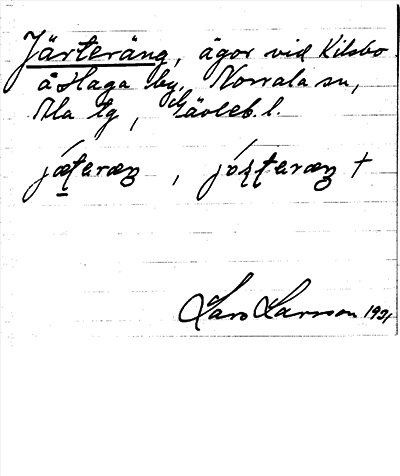 Järteräng, ägor vid Kilsbo
å Haga by, Norrala sn,
Ala tg, Gävleb. l.
Lars Larsson 1931